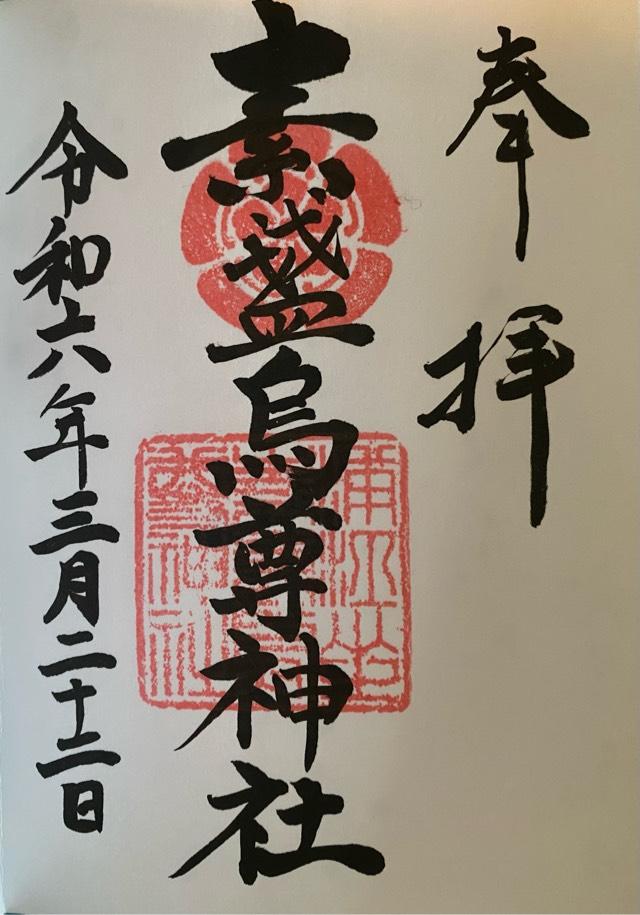 奉拝
素盞烏尊神社
令和六年三月二十二日